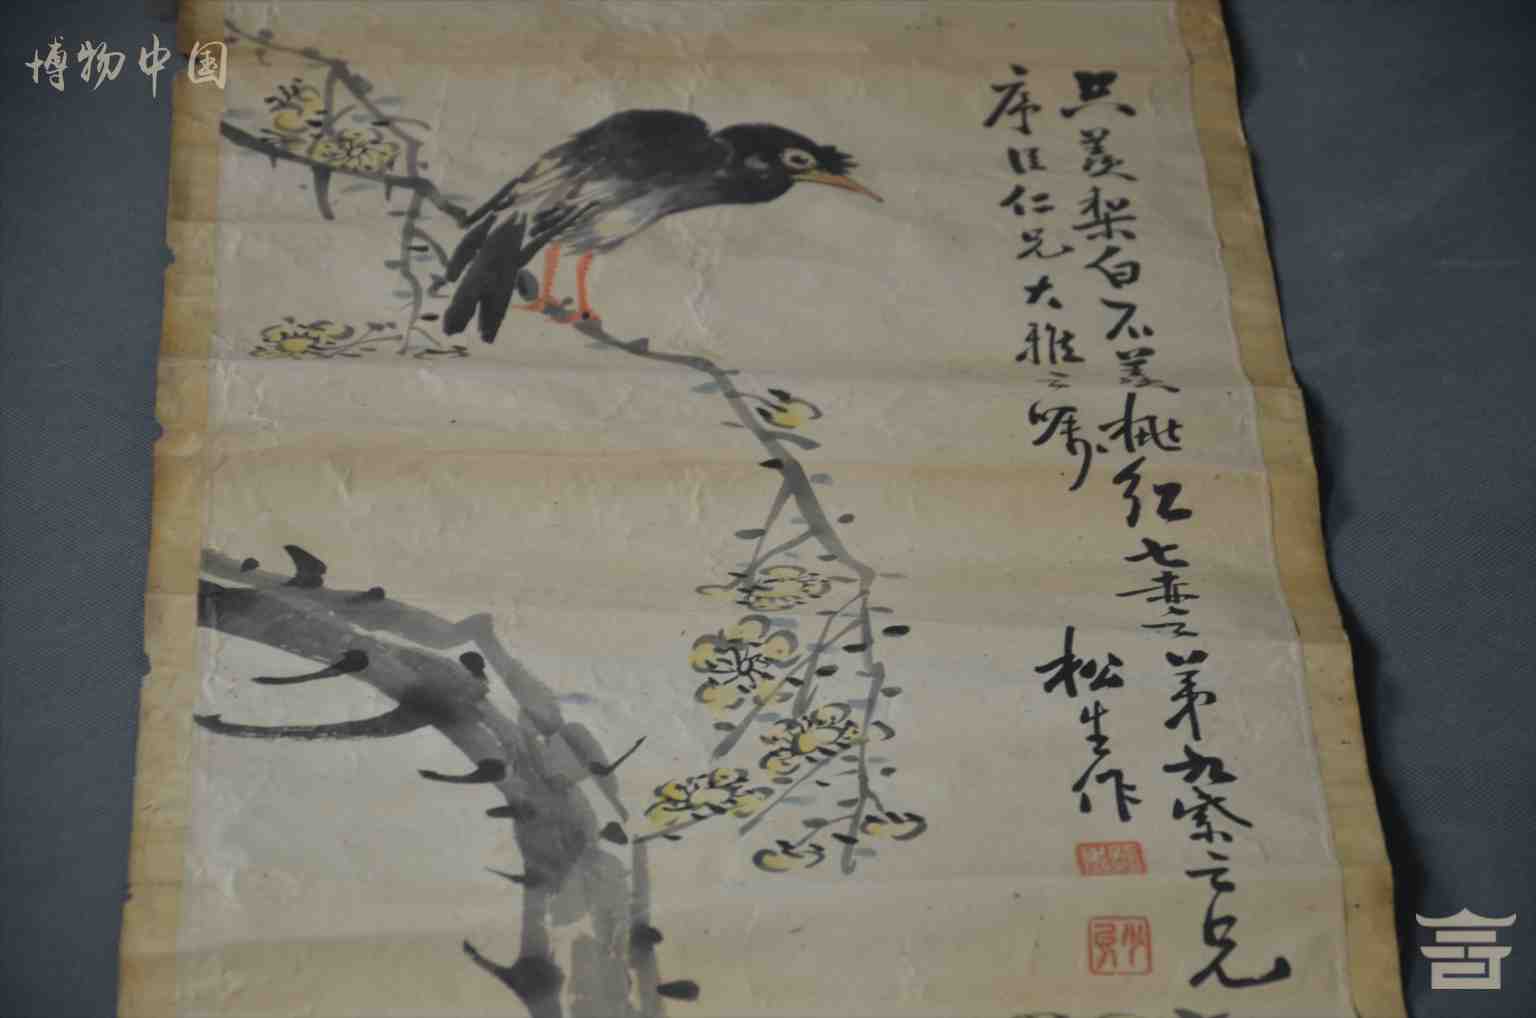 博物中国
只羡梨白不羡桃红七赤之弟九紫之兄
序江仁兄大雅之嘱
松生作